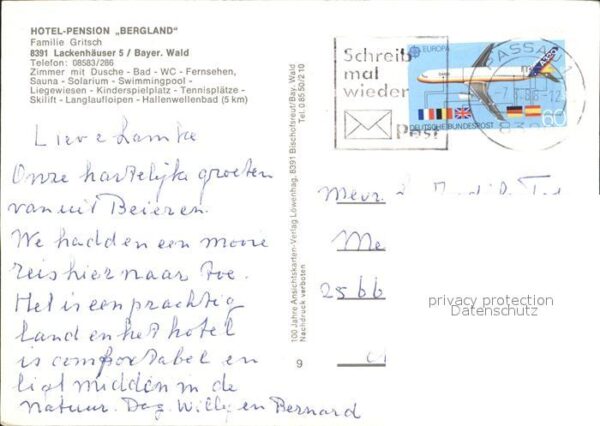 HOTEL-PENSION „BERGLAND“
Familie Gritsch
8391 Lackenhäuser 5 / Bayer. Wald
Telefon: 08583/286
Zimmer mit Dusche - Bad - WC - Fernsehen,
Sauna - Solarium - Swimmingpool -
Liegewiesen - Kinderspielplatz - Tennisplätze -
Skilift - Langlaufloipen - Hallenwellenbad (5 km)
Lieve
Onze hartelijke groeten
vanuit Beieren.
We hadden een mooie
reis hier naar toe.
Het is een prachtig
land en het hotel
is comfortabel en
ligt midden in de
natuur. Dag. Willy en Bernard
100 Jahre Ansichtskarten-Verlag Löwenhag, 8391 Bischofsreut/Bay. Wald
Nachdruck verboten
Tel. 0 85 50/2 10
9
Schreib
mal
wieder
Post
EUROPA
DEUTSCHE BUNDESPOST
60
PASSAU
Mevr.
Me
privacy protection
Datenschutz